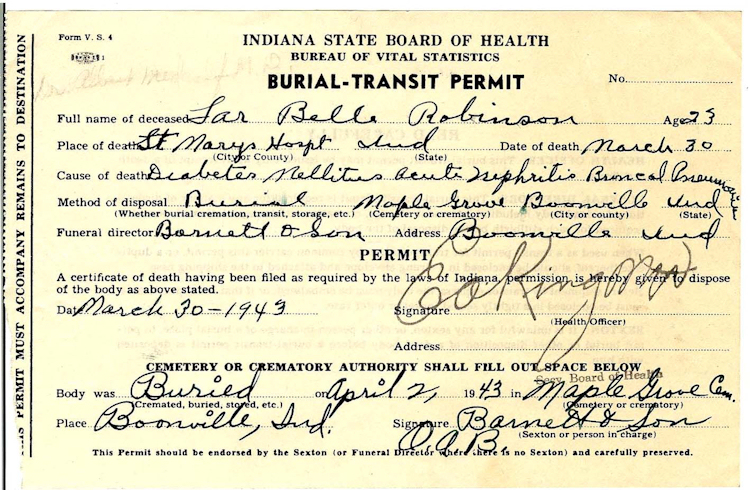 Form V. S. 4
INDIANA STATE BOARD OF HEALTH
BUREAU OF VITAL STATISTICS
BURIAL-TRANSIT PERMIT
No.
Full name of deceased Tar Belle Robinson Age 23
Place of death St Marys Hospt Ind Date of death March 30
(City or County) (State)
Cause of death Diabetes Mellitus acute Nephritis Broncal Pneumonia
Method of disposal Burial Maple Grove Boonville Ind
(Whether burial cremation, transit, storage, etc.) (Cemetery or crematory) (City or county) (State)
Funeral director Barnett & Son Address Boonville Ind
PERMIT
A certificate of death having been filed as required by the laws of Indiana, permission is hereby given to dispose
of the body as above stated.
Date March 30-1943 Signature
(Health Officer)
Address
CEMETERY OR CREMATORY AUTHORITY SHALL FILL OUT SPACE BELOW
Secy. Board of Health
Body was Buried on April 2, 1943 in Maple Grove Cem.
(Cremated, buried, stored, etc.) (Cemetery or crematory)
Place Boonville, Ind. Signature Barnett & Son
(Sexton or person in charge)
O.O.B.
This Permit should be endorsed by the Sexton (or Funeral Director where there is no Sexton) and carefully preserved.
THIS PERMIT MUST ACCOMPANY REMAINS TO DESTINATION